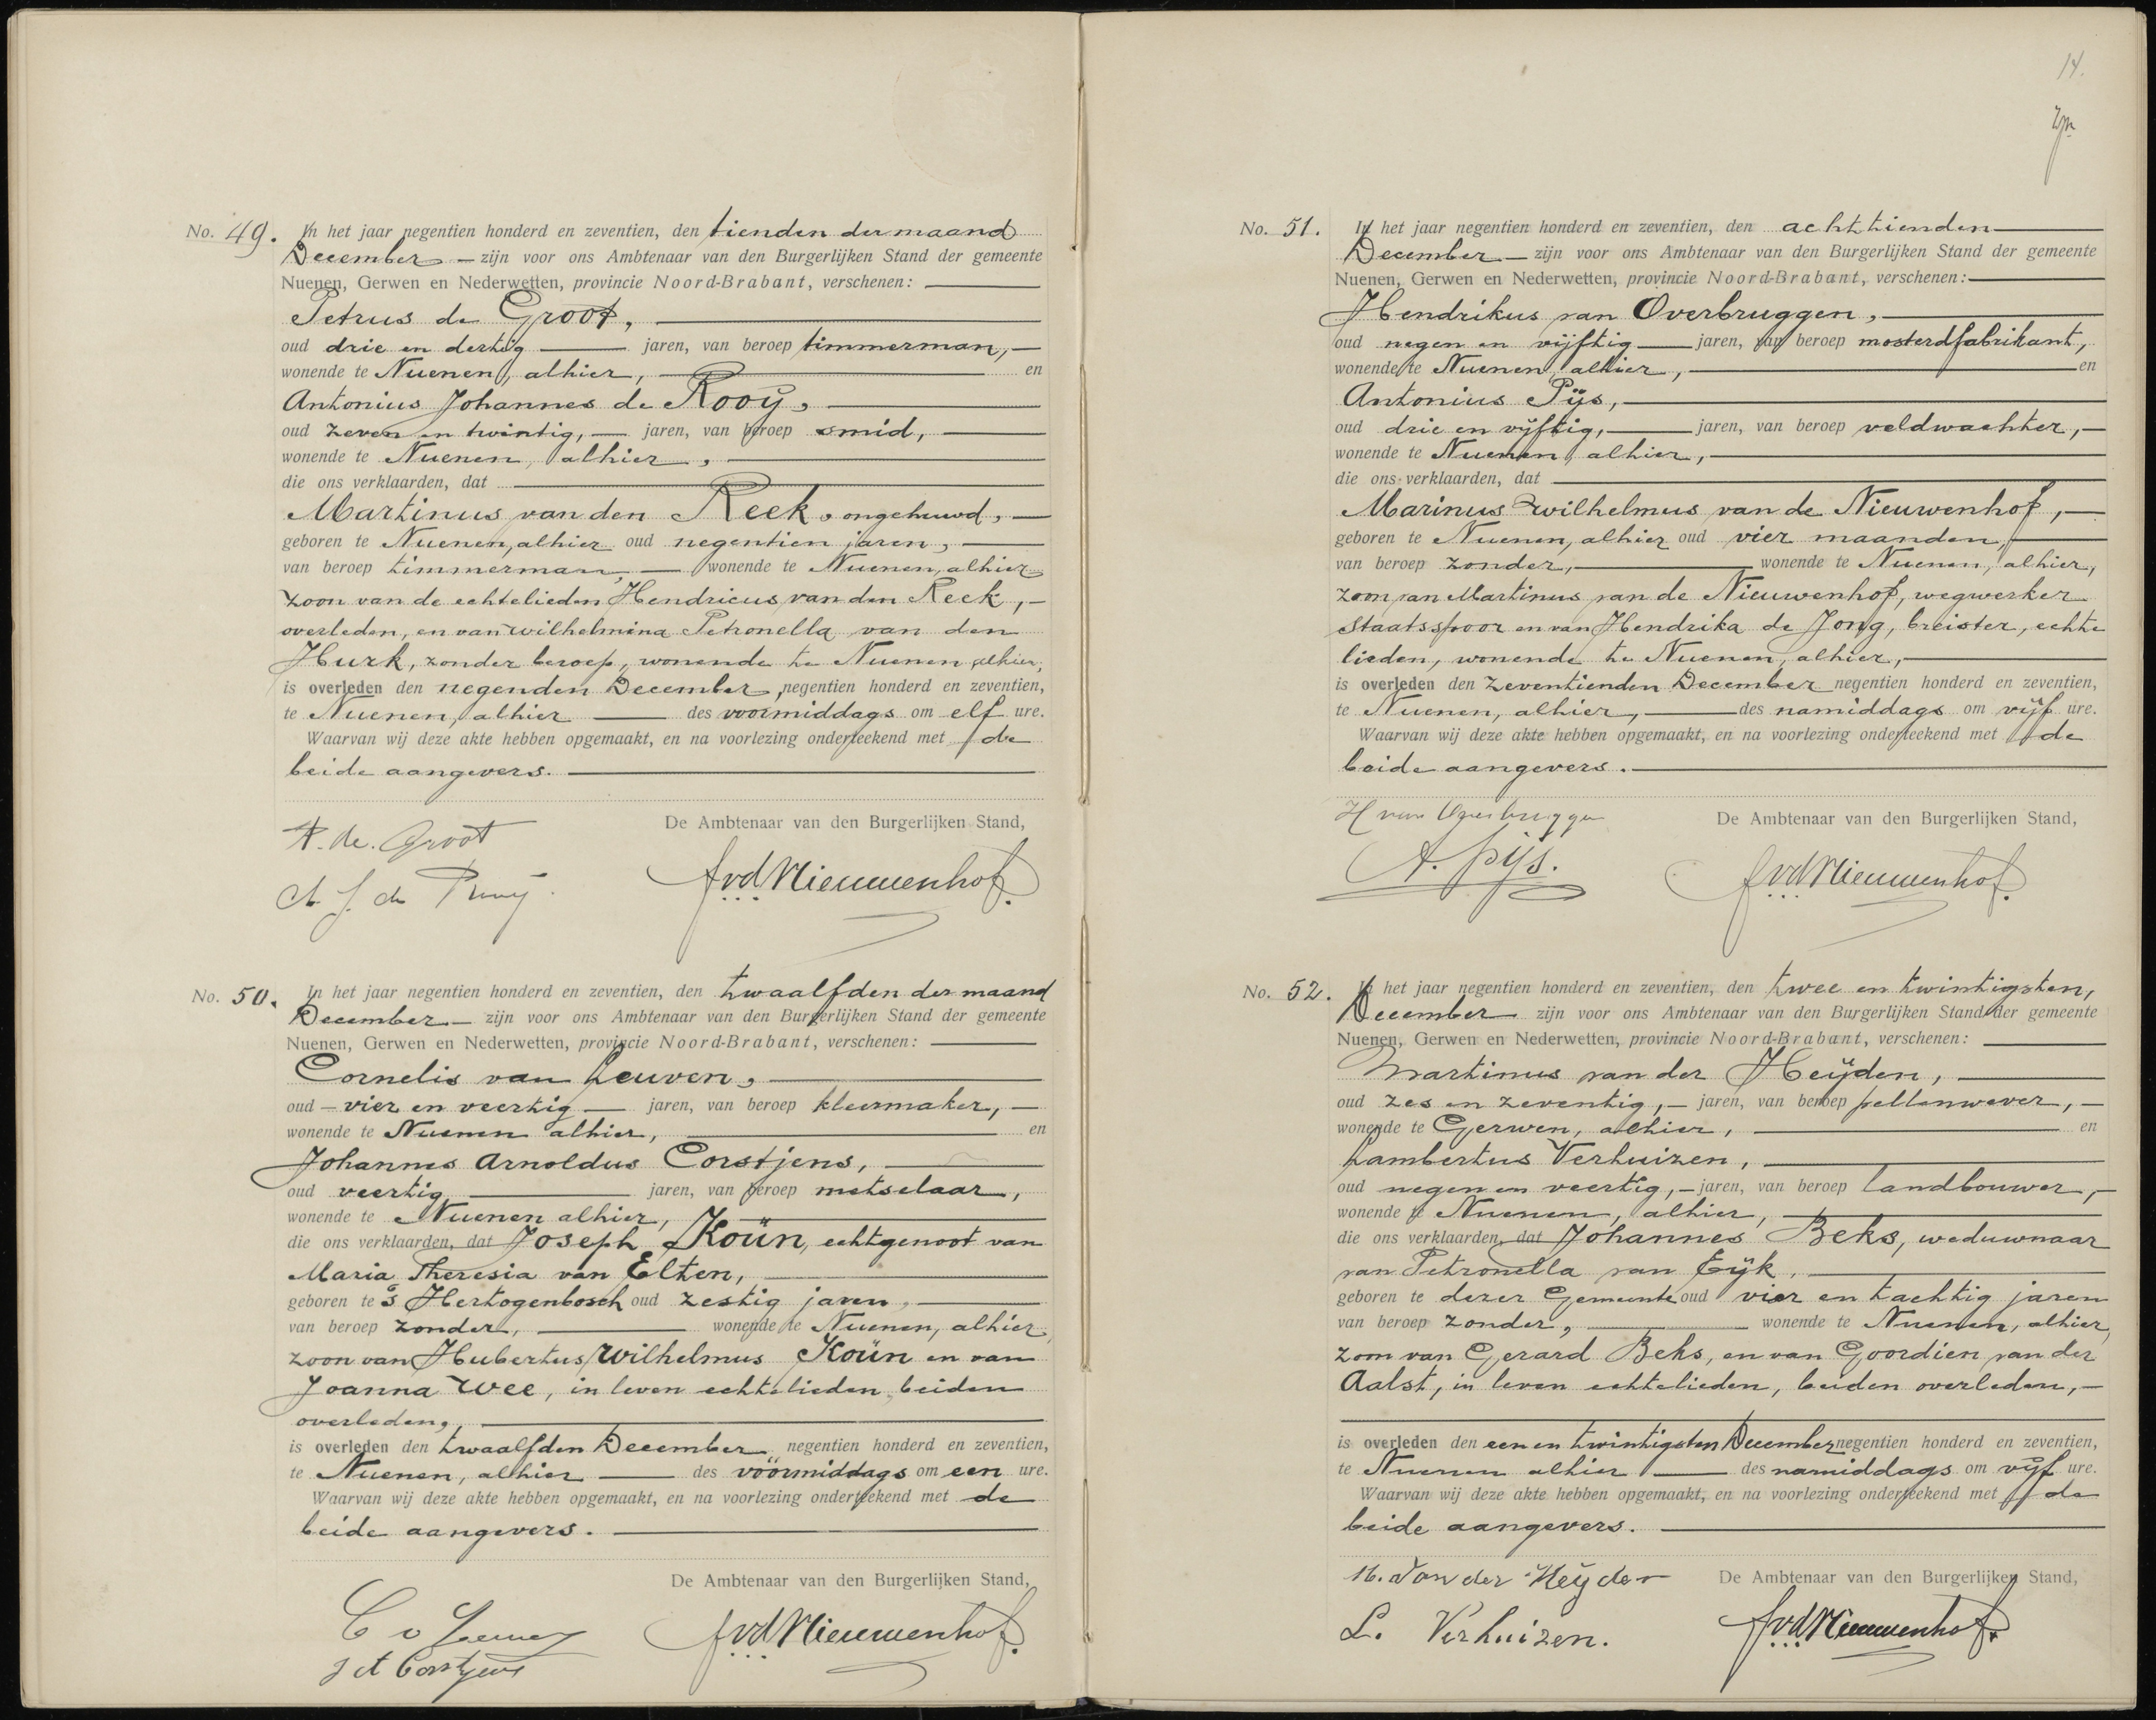 No. 49. In het jaar negentien honderd en zeventien, den tienden der maand
December — zijn voor ons Ambtenaar van den Burgerlijken Stand der gemeente
Nuenen, Gerwen en Nederwetten, provincie Noord-Brabant, verschenen:
Petrus de Groot,
oud drie en dertig — jaren, van beroep timmerman, —
wonende te Nuenen, alhier, — en
Antonius Johannes de Rooÿ,
oud zeven en twintig, — jaren, van beroep smid,
wonende te Nuenen, alhier,
die ons verklaarden, dat
Martinus van den Reek, ongehuwd, —
geboren te Nuenen, alhier oud negentien jaren,
van beroep timmerman, — wonende te Nuenen, alhier
zoon van de echtelieden Hendricus van den Reek, —
overleden, en van Wilhelmina Petronella van den
Hurk, zonder beroep, wonende te Nuenen alhier,
is overleden den negenden December, negentien honderd en zeventien,
te Nuenen, alhier — des voormiddags om elf ure.
Waarvan wij deze akte hebben opgemaakt, en na voorlezing onderteekend met de
beide aangevers.
De Ambtenaar van den Burgerlijken Stand,
P. de Groot
A J de Rooÿ.
AvdNieuwenhof.
No. 50. In het jaar negentien honderd en zeventien, den twaalfden der maand
December — zijn voor ons Ambtenaar van den Burgerlijken Stand der gemeente
Nuenen, Gerwen en Nederwetten, provincie Noord-Brabant, verschenen:
Cornelis van Leuven,
oud — vier en veertig — jaren, van beroep kleermaker, —
wonende te Nuenen alhier, — en
Johannes Arnoldus Corstjens,
oud veertig — jaren, van beroep metselaar,
wonende te Nuenen alhier,
die ons verklaarden, dat Joseph Koün, echtgenoot van
Maria Theresia van Elten,
geboren te 's Hertogenbosch oud zestig jaren,
van beroep zonder, — wonende te Nuenen, alhier,
zoon van Hubertus Wilhelmus Koün en van
Joanna Wee, in leven echtelieden, beiden
overleden,
is overleden den twaalfden December negentien honderd en zeventien,
te Nuenen, alhier — des voormiddags om een ure.
Waarvan wij deze akte hebben opgemaakt, en na voorlezing onderteekend met de
beide aangevers.
De Ambtenaar van den Burgerlijken Stand,
C v Leuven
J A Corstjens
AvdNieuwenhof.
14.
No. 51. In het jaar negentien honderd en zeventien, den achttienden
December — zijn voor ons Ambtenaar van den Burgerlijken Stand der gemeente
Nuenen, Gerwen en Nederwetten, provincie Noord-Brabant, verschenen:
Hendrikus van Overbruggen,
oud negen en vijftig — jaren, van beroep mosterdfabrikant,
wonende te Nuenen, alhier, — en
Antonius Pÿs,
oud drie en vÿftig, — jaren, van beroep veldwachter, —
wonende te Nuenen, alhier,
die ons verklaarden, dat
Marinus Wilhelmus van de Nieuwenhof, —
geboren te Nuenen, alhier oud vier maanden,
van beroep zonder, — wonende te Nuenen, alhier,
zoon van Martinus van de Nieuwenhof, wegwerker
Staatsspoor en van Hendrika de Jong, breister, echte
lieden, wonende te Nuenen, alhier,
is overleden den zeventienden December negentien honderd en zeventien,
te Nuenen, alhier, — des namiddags om vÿf ure.
Waarvan wij deze akte hebben opgemaakt, en na voorlezing onderteekend met de
beide aangevers.
De Ambtenaar van den Burgerlijken Stand,
H van Overbruggen
A. Pÿs.
AvdNieuwenhof.
No. 52. In het jaar negentien honderd en zeventien, den twee en twintigsten,
December zijn voor ons Ambtenaar van den Burgerlijken Stand der gemeente
Nuenen, Gerwen en Nederwetten, provincie Noord-Brabant, verschenen:
Martinus van der Heÿden,
oud zes en zeventig, — jaren, van beroep pellenwever, —
wonende te Gerwen, alhier, — en
Lambertus Verhuizen,
oud negen en veertig, — jaren, van beroep landbouwer, —
wonende te Nuenen, alhier,
die ons verklaarden, dat Johannes Beks, weduwnaar
van Petronella van Eÿk,
geboren te dezer Gemeente oud vier en tachtig jaren
van beroep zonder, — wonende te Nuenen, alhier,
zoon van Gerard Beks, en van Goordien van der
Aalst, in leven echtelieden, beiden overleden, —
is overleden den een en twintigsten December negentien honderd en zeventien,
te Nuenen alhier — des namiddags om vÿf ure.
Waarvan wij deze akte hebben opgemaakt, en na voorlezing onderteekend met de
beide aangevers.
De Ambtenaar van den Burgerlijken Stand,
M. Van der Heÿden
L. Verhuizen.
AvdNieuwenhof.